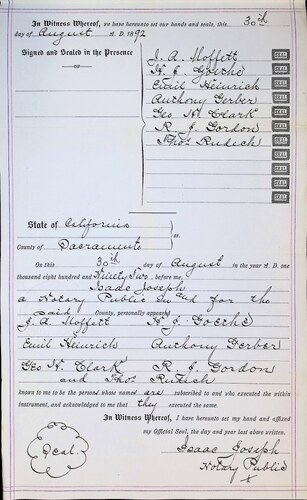 In Witness Whereof, we have hereunto set our hands and seals, this 30th
day of August A. D. 1892
Signed and Sealed in the Presence
OF
J. A. Moffett SEAL
H. J. Goethe SEAL
Emil Heinrich SEAL
Anthony Gerber SEAL
Geo H. Clark SEAL
R. J. Gordon SEAL
Thos Rutsch SEAL
SEAL
SEAL
State of California
County of Sacramento ss.
On this 30th day of August in the year A. D. one
thousand eight hundred and Ninety Two before me,
Isaac Joseph
a Notary Public in and for the
said County, personally appeared
J. A. Moffett H. J. Goethe
Emil Heinrich Anthony Gerber
Geo H. Clark R. J. Gordon
and Thos Rutsch
known to me to be the persons whose names are subscribed to and who executed the within
instrument, and acknowledged to me that they executed the same.
In Witness Whereof, I have hereunto set my hand and affixed
my Official Seal, the day and year last above written.
Seal
Isaac Joseph
Notary Public